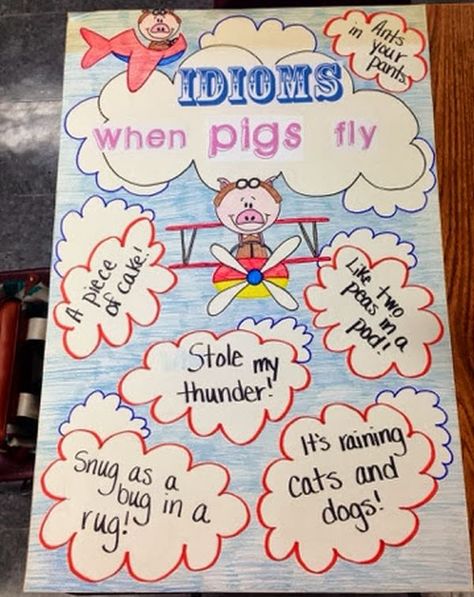 Ants
in your
pants
IDIOMS
when pigs fly
A piece
of cake!
Like two
peas in a
pod!
Stole my
thunder!
Snug as a
bug in a
rug!
It's raining
cats and
dogs!